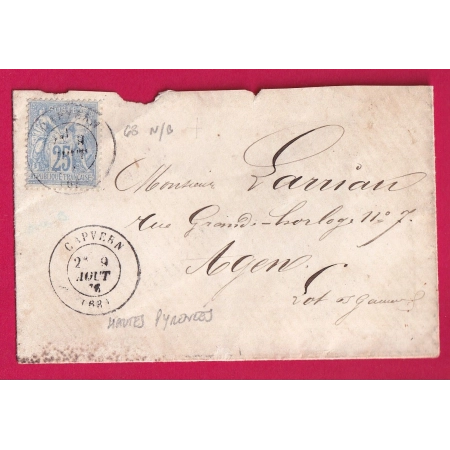 CAPVERN
25
68 N/B
Monsieur Larrian
rue Grande-horloge N° 7.
Agen
Lot et Garonne
CAPVERN
2E 9
AOUT
76
(68)
HAUTES PYRENEES